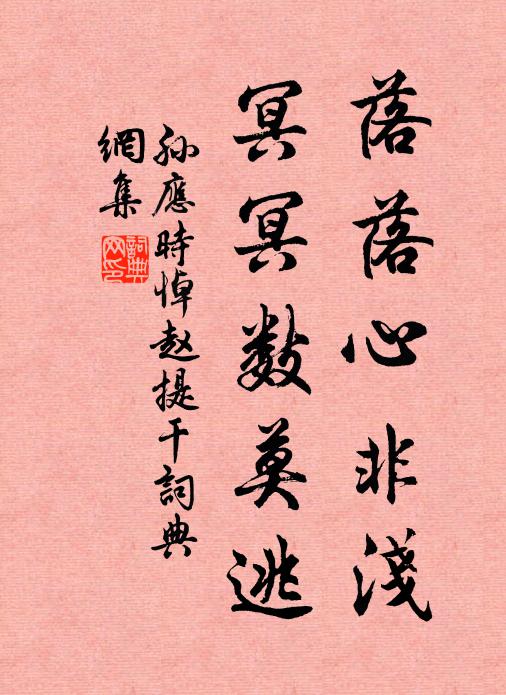 落落心非淺
冥冥數莫逃
孙應時悼赵提干詞典
網集
詞典网印